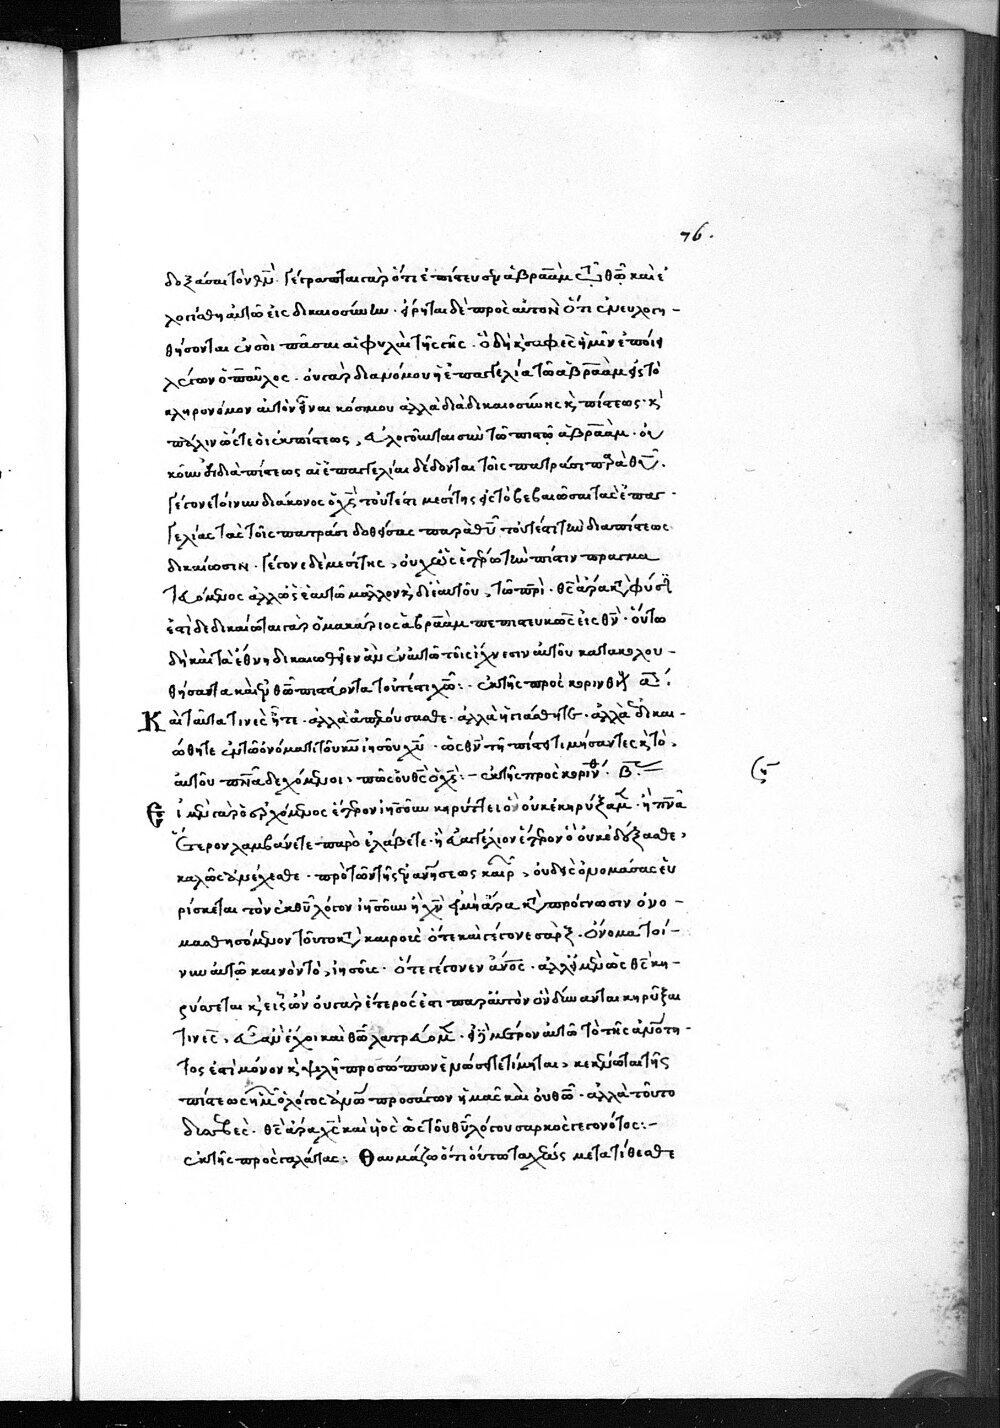 76.
δοξάσαι τὸν θν̅. γέγραπται γὰρ ὅτι ἐπίστευσεν ἀβραὰμ τῷ θω̅ καὶ ἐ
λογίσθη αὐτῶ εἰς δικαιοσύνην. εἴρηται δὲ πρὸς αὐτὸν ὅτι ἐνευλογη-
θήσονται ἐν σοὶ πᾶσαι αἱ φυλαὶ τῆς γῆς. ὃ δὴ κ̀ σαφὲς ἡμῖν ἐποίει
λέγων ὁ παῦλος. οὐ γὰρ διὰ νόμου ἡ ἐπαγγελία τῶ ἀβραὰμ εἰς τὸ
κληρονόμον αὐτὸν εἶναι κόσμου ἀλλὰ διὰ δικαιοσύνης κ̀ πίστεως. κ̀
πάλιν ὥστε οἱ ἐκ πίστεως, εὐλογοῦνται σὺν τῶ πιστῶ ἀβραάμ. οὐ
κοῦν εἰ διὰ πίστεως αἱ ἐπαγγελίαι δέδονται τοῖς πατράσι παρὰ θυ̅.
γέγονε τοίνυν διάκονος ὁ χς̅ τουτέστι μεσίτης εἰς τὸ βεβαιῶσαι τὰς ἐπαγ-
γελίας τὰς τοῖς πατράσι δοθείσας παρὰ θυ̅ τουτέστι τὴν διὰ πίστεως
δικαίωσιν. γέγονε δὲ μεσίτης, οὐχ ὡς ἑτέρω τὴν πίστιν πραγμα
τευόμενος ἀλλ' ὡς ἑαυτῶ μᾶλλον κ̀ δι' ἑαυτοῦ, τῶ πρι̅. θς̅ ἄρα κατὰ φύσιν
ἐστί δεδικαίωται γὰρ ὁ μακάριος ἀβραὰμ πεπιστευκὼς εἰς θν̅. οὕτω
δὴ καὶ τὰ ἔθνη δικαιωθεῖεν ἂν ἐν αὐτῶ τοῖς ἴχνεσιν αὐτοῦ κατακολου-
θήσαντα καὶ θω̅ πιστεύοντα τουτέστι χω̅:- ἐκ τῆς πρὸς κορινθίους α̅.
Καὶ ταῦτα τινὲς ἦτε. ἀλλὰ ἀπελούσασθε. ἀλλὰ ἡγιάσθητε. ἀλλὰ ἐδικαι-
ώθητε ἐν τῶ ὀνόματι τοῦ κυ̅ ἰησοῦ χυ̅. ὡς θν̅ τῆ πίστει τιμήσαντες κ̀ τὸ,
αὐτοῦ πνα̅ δεχόμενοι, πῶς οὐ θς̅ ὁ χς̅:- ἐκ τῆς πρὸς κορινθ. β̅.
Εἰ μὲν γὰρ ὁ ἐρχόμενος ἕτερον ἰησοῦν κηρύττει ὃν οὐκ ἐκηρύξαμεν. ἢ πνα̅
ἕτερον λαμβάνετε παρ' ὃ ἐλάβετε. ἢ εὐαγγέλιον ἕτερον ὃ οὐκ ἐδέξασθε,
καλῶς ἀνείχεσθε. πρὸ τῶν τῆς ἐνανθρωπήσεως καιρῶν, οὐδεὶς ὀνομάσας εὑ
ρίσκεται τὸν ἐκ θυ̅ λόγον ἰησοῦν ἢ χν̅ εἰ μὴ ἄρα κατὰ πρόγνωσιν ὀνο-
μασθησόμενον τοῦτο κατὰ καιροὺς ὅτε καὶ γέγονε σάρξ. ὄνομα τοί-
νυν αὐτῶ καινὸν τὸ, ἰησοῦς. ὅτε γέγονεν ανο̅ς. ἀλλ' εἰ μὲν ὡς θς̅ κη-
ρύσσεται κ̀ εἷς ὢν οὐ γὰρ ἕτερός ἐστι παρ' αὐτὸν ὃν δύνανται κηρῦξαι
τινὲς, εὖ ἂν ἔχοι καὶ θω̅ λατρεύομεν. εἰ δὲ μέτρον αὐτῶ τὸ τῆς ἀνθρωπότη-
τος ἐστὶ μόνον κ̀ ψιλῆ προσώπων ἑνώσει τετίμηται, κεκένωται τῆς
πίστεως ἡμῶν ὁ λόγος ἀνω̅ προσάγων ἡμᾶς καὶ οὐ θω̅. ἀλλὰ τοῦτο
δυσσεβές. θς̅ ἄρα χς̅ καὶ υἱὸς ὡς τοῦ θυ̅ λόγου σαρκὸς γεγονότος:-
ἐκ τῆς πρὸς γαλάτας: Θαυμάζω ὅτι οὕτω ταχέως μετατίθεσθε